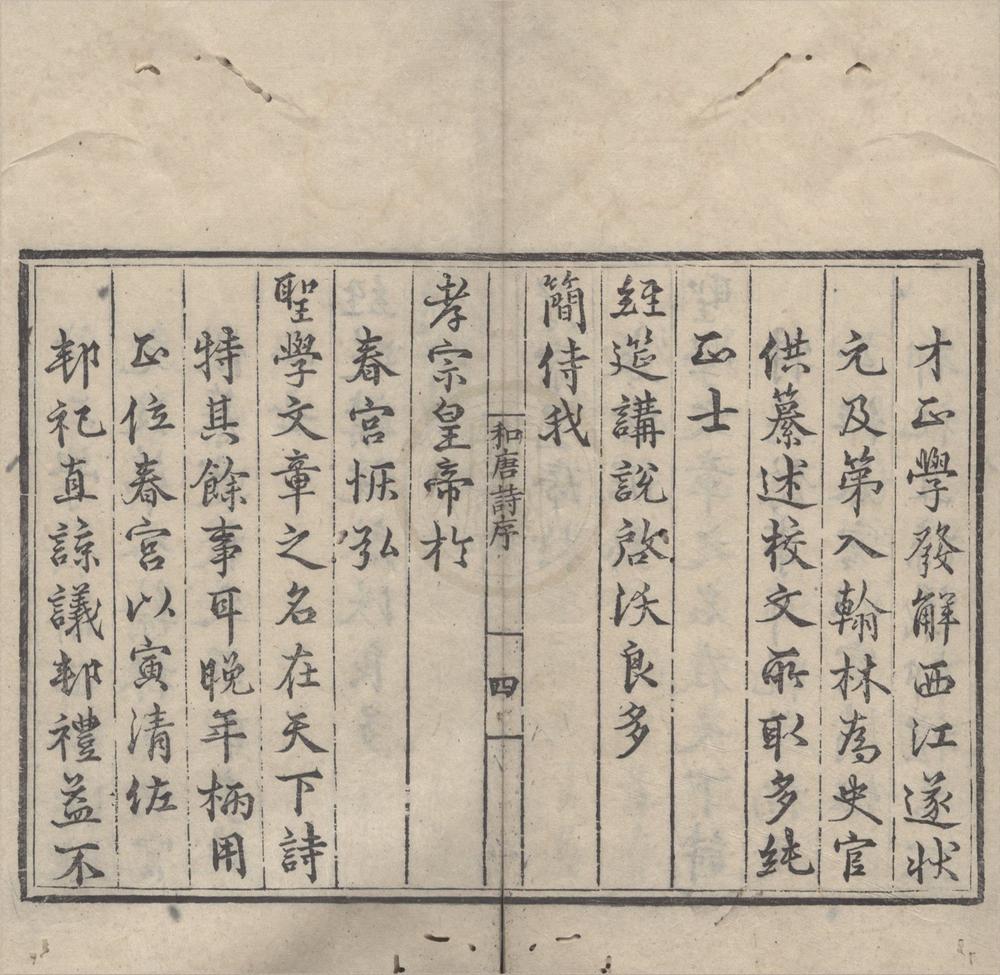 才正學發解西江遂狀
元及第入翰林為史官
供纂述校文所取多純
正士
經筵講說啓沃良多
簡侍我
和唐詩序
四
孝宗皇帝於
春宮恢弘
聖學文章之名在天下詩
特其餘事耳晚年柄用
正位春宮以寅清佐
邦祀直諒議邦禮益不